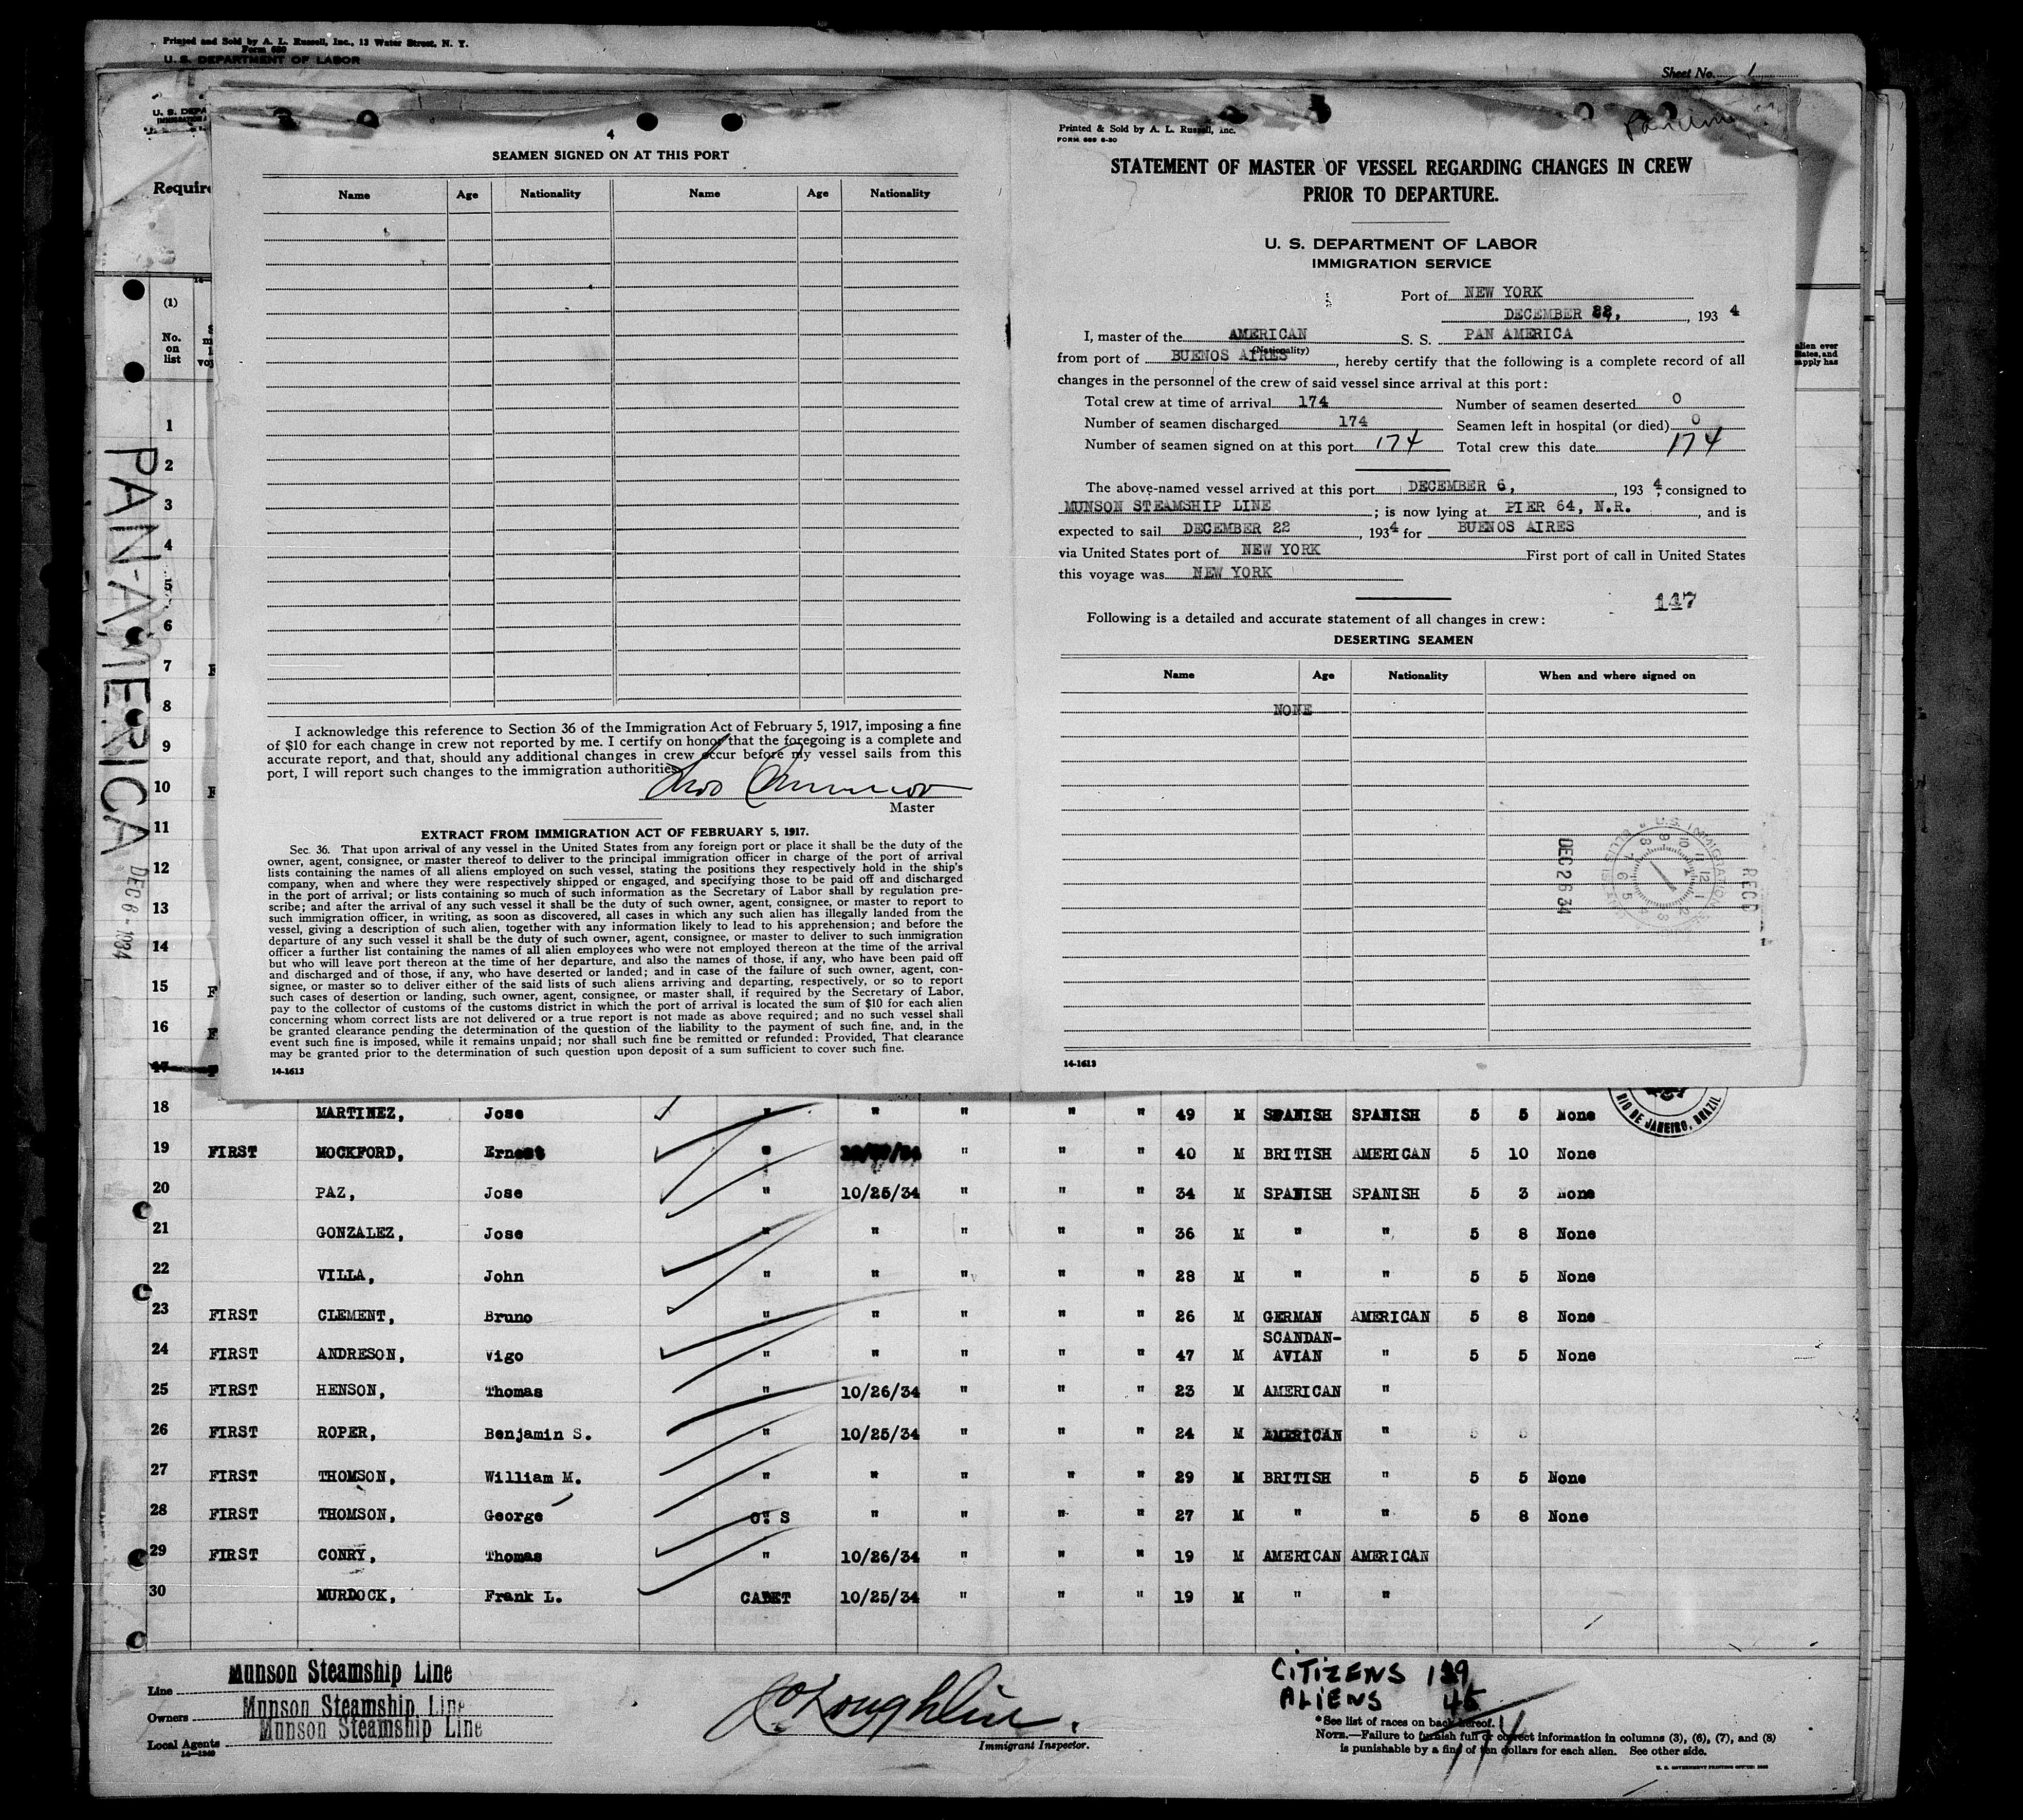 Printed and Sold by A. L. Russell, Inc., 13 Water Street, N. Y.
Form 680
U. S. DEPARTMENT OF LABOR
Sheet No. 1
U. S. DEPA
Require
(1)
No.
on
list
1
2
3
4
5
6
7
8
9
10
11
12
13
14
15
16
17
PAN-AMERICA
DEC 6 - 1934
alien ever
States, and
supply has
4
SEAMEN SIGNED ON AT THIS PORT
Name Age Nationality Name Age Nationality
I acknowledge this reference to Section 36 of the Immigration Act of February 5, 1917, imposing a fine
of $10 for each change in crew not reported by me. I certify on honor that the foregoing is a complete and
accurate report, and that, should any additional changes in crew occur before my vessel sails from this
port, I will report such changes to the immigration authorities.
Master
EXTRACT FROM IMMIGRATION ACT OF FEBRUARY 5, 1917.
Sec. 36. That upon arrival of any vessel in the United States from any foreign port or place it shall be the duty of the
owner, agent, consignee, or master thereof to deliver to the principal immigration officer in charge of the port of arrival
lists containing the names of all aliens employed on such vessel, stating the positions they respectively hold in the ship's
company, when and where they were respectively shipped or engaged, and specifying those to be paid off and discharged
in the port of arrival; or lists containing so much of such information as the Secretary of Labor shall by regulation pre-
scribe; and after the arrival of any such vessel it shall be the duty of such owner, agent, consignee, or master to report to
such immigration officer, in writing, as soon as discovered, all cases in which any such alien has illegally landed from the
vessel, giving a description of such alien, together with any information likely to lead to his apprehension; and before the
departure of any such vessel it shall be the duty of such owner, agent, consignee, or master to deliver to such immigration
officer a further list containing the names of all alien employees who were not employed thereon at the time of the arrival
but who will leave port thereon at the time of her departure, and also the names of those, if any, who have been paid off
and discharged and of those, if any, who have deserted or landed; and in case of the failure of such owner, agent, con-
signee, or master so to deliver either of the said lists of such aliens arriving and departing, respectively, or so to report
such cases of desertion or landing, such owner, agent, consignee, or master shall, if required by the Secretary of Labor,
pay to the collector of customs of the customs district in which the port of arrival is located the sum of $10 for each alien
concerning whom correct lists are not delivered or a true report is not made as above required; and no such vessel shall
be granted clearance pending the determination of the question of the liability to the payment of such fine, and, in the
event such fine is imposed, while it remains unpaid; nor shall such fine be remitted or refunded: Provided, That clearance
may be granted prior to the determination of such question upon deposit of a sum sufficient to cover such fine.
14-1613
Printed & Sold by A. L. Russell, Inc.
FORM 689 6-30
STATEMENT OF MASTER OF VESSEL REGARDING CHANGES IN CREW
PRIOR TO DEPARTURE.
U. S. DEPARTMENT OF LABOR
IMMIGRATION SERVICE
Port of NEW YORK
DECEMBER 22, , 193 4
I, master of the AMERICAN S. S. PAN AMERICA
(Nationality)
from port of BUENOS AIRES , hereby certify that the following is a complete record of all
changes in the personnel of the crew of said vessel since arrival at this port:
Total crew at time of arrival 174 Number of seamen deserted 0
Number of seamen discharged 174 Seamen left in hospital (or died) 0
Number of seamen signed on at this port 174 Total crew this date 174
The above-named vessel arrived at this port DECEMBER 6, , 193 4, consigned to
MUNSON STEAMSHIP LINE ; is now lying at PIER 64, N.R. , and is
expected to sail DECEMBER 22 , 1934 for BUENOS AIRES
via United States port of NEW YORK First port of call in United States
this voyage was NEW YORK
147
Following is a detailed and accurate statement of all changes in crew:
DESERTING SEAMEN
Name Age Nationality When and where signed on
NONE
DEC 26 34
U.S. IMMIGRATION
RECD
14-1613
RIO DE JANEIRO, BRAZIL
18 MARTINEZ, Jose " " " " " 49 M SPANISH SPANISH 5 5 None
19 FIRST MOCKFORD, Ernest " " " " 40 M BRITISH AMERICAN 5 10 None
20 PAZ, Jose " 10/25/34 " " " 34 M SPANISH SPANISH 5 3 None
21 GONZALEZ, Jose " " " " " 36 M " " 5 8 None
22 VILLA, John " " " " " 28 M " " 5 5 None
23 FIRST CLEMENT, Bruno " " " " " 26 M GERMAN AMERICAN 5 8 None
24 FIRST ANDRESON, Vigo " " " " " 47 M SCANDAN-AVIAN " 5 5 None
25 FIRST HENSON, Thomas " 10/26/34 " " " 23 M AMERICAN "
26 FIRST ROPER, Benjamin S. " 10/25/34 " " " 24 M AMERICAN " 5 5
27 FIRST THOMSON, William M. " " " " " 29 M BRITISH " 5 5 None
28 FIRST THOMSON, George O. S " " " " 27 M " " 5 8 None
29 FIRST CONRY, Thomas " 10/26/34 " " " 19 M AMERICAN AMERICAN
30 MURDOCK, Frank L. CADET 10/25/34 " " " 19 M " "
Line Munson Steamship Line
Owners Munson Steamship Line
Local Agents Munson Steamship Line
14-1240
Immigrant Inspector.
CITIZENS 139
ALIENS 45
174
*See list of races on back hereof.
NOTE.—Failure to furnish full or correct information in columns (3), (6), (7), and (8)
is punishable by a fine of ten dollars for each alien. See other side.